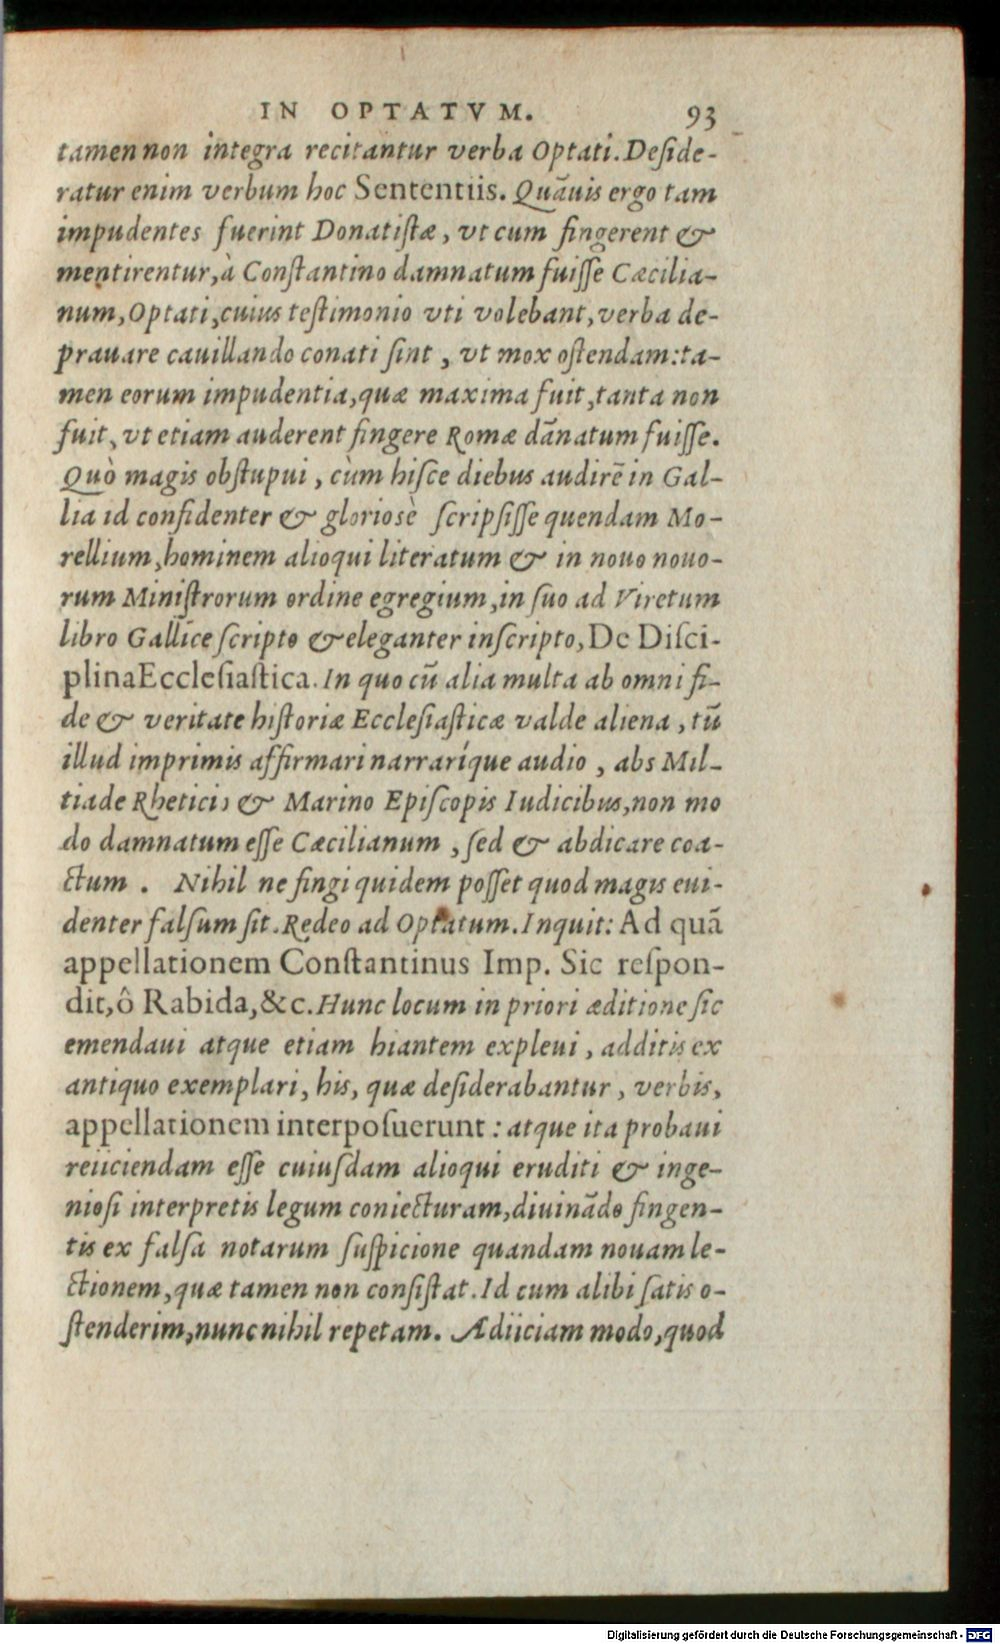 IN OPTATVM. 93
tamen non integra recitantur verba Optati. Deſide-
ratur enim verbum hoc Sententiis. Quāuis ergo tam
impudentes fuerint Donatiſtæ, vt cum fingerent &
mentirentur, à Conſtantino damnatum fuiſſe Cæcilia-
num, Optati, cuius teſtimonio vti volebant, verba de-
prauare cauillando conati ſint, vt mox oſtendam: ta-
men eorum impudentia, quæ maxima fuit, tanta non
fuit, vt etiam auderent fingere Romæ dānatum fuiſſe.
Quò magis obſtupui, cùm hiſce diebus audirē in Gal-
lia id confidenter & glorioſè ſcripſiſſe quendam Mo-
rellium, hominem alioqui literatum & in nouo nouo-
rum Miniſtrorum ordine egregium, in ſuo ad Viretum
libro Gallice ſcripto & eleganter inſcripto, De Diſci-
plina Eccleſiaſtica. In quo cū alia multa ab omni fi-
de & veritate hiſtoriæ Eccleſiaſticæ valde aliena, tū
illud imprimis affirmari narraríque audio, abs Mil-
tiade Rheticis & Marino Epiſcopis Iudicibus, non mo
do damnatum eſſe Cæcilianum, ſed & abdicare coa-
ctum. Nihil ne fingi quidem poſſet quod magis eui-
denter falſum ſit. Redeo ad Optatum. Inquit: Ad quā
appellationem Conſtantinus Imp. Sic reſpon-
dit, ô Rabida, &c. Hunc locum in priori æditione ſic
emendaui atque etiam hiantem expleui, additis ex
antiquo exemplari, his, quæ deſiderabantur, verbis,
appellationem interpoſuerunt: atque ita probaui
reiiciendam eſſe cuiuſdam alioqui eruditi & inge-
nioſi interpretis legum coniecturam, diuinādo fingen-
tis ex falſa notarum ſuſpicione quandam nouam le-
ctionem, quæ tamen non conſiſtat. Id cum alibi ſatis o-
ſtenderim, nunc nihil repetam. Adiiciam modo, quod
Digitalisierung gefördert durch die Deutsche Forschungsgemeinschaft - DFG